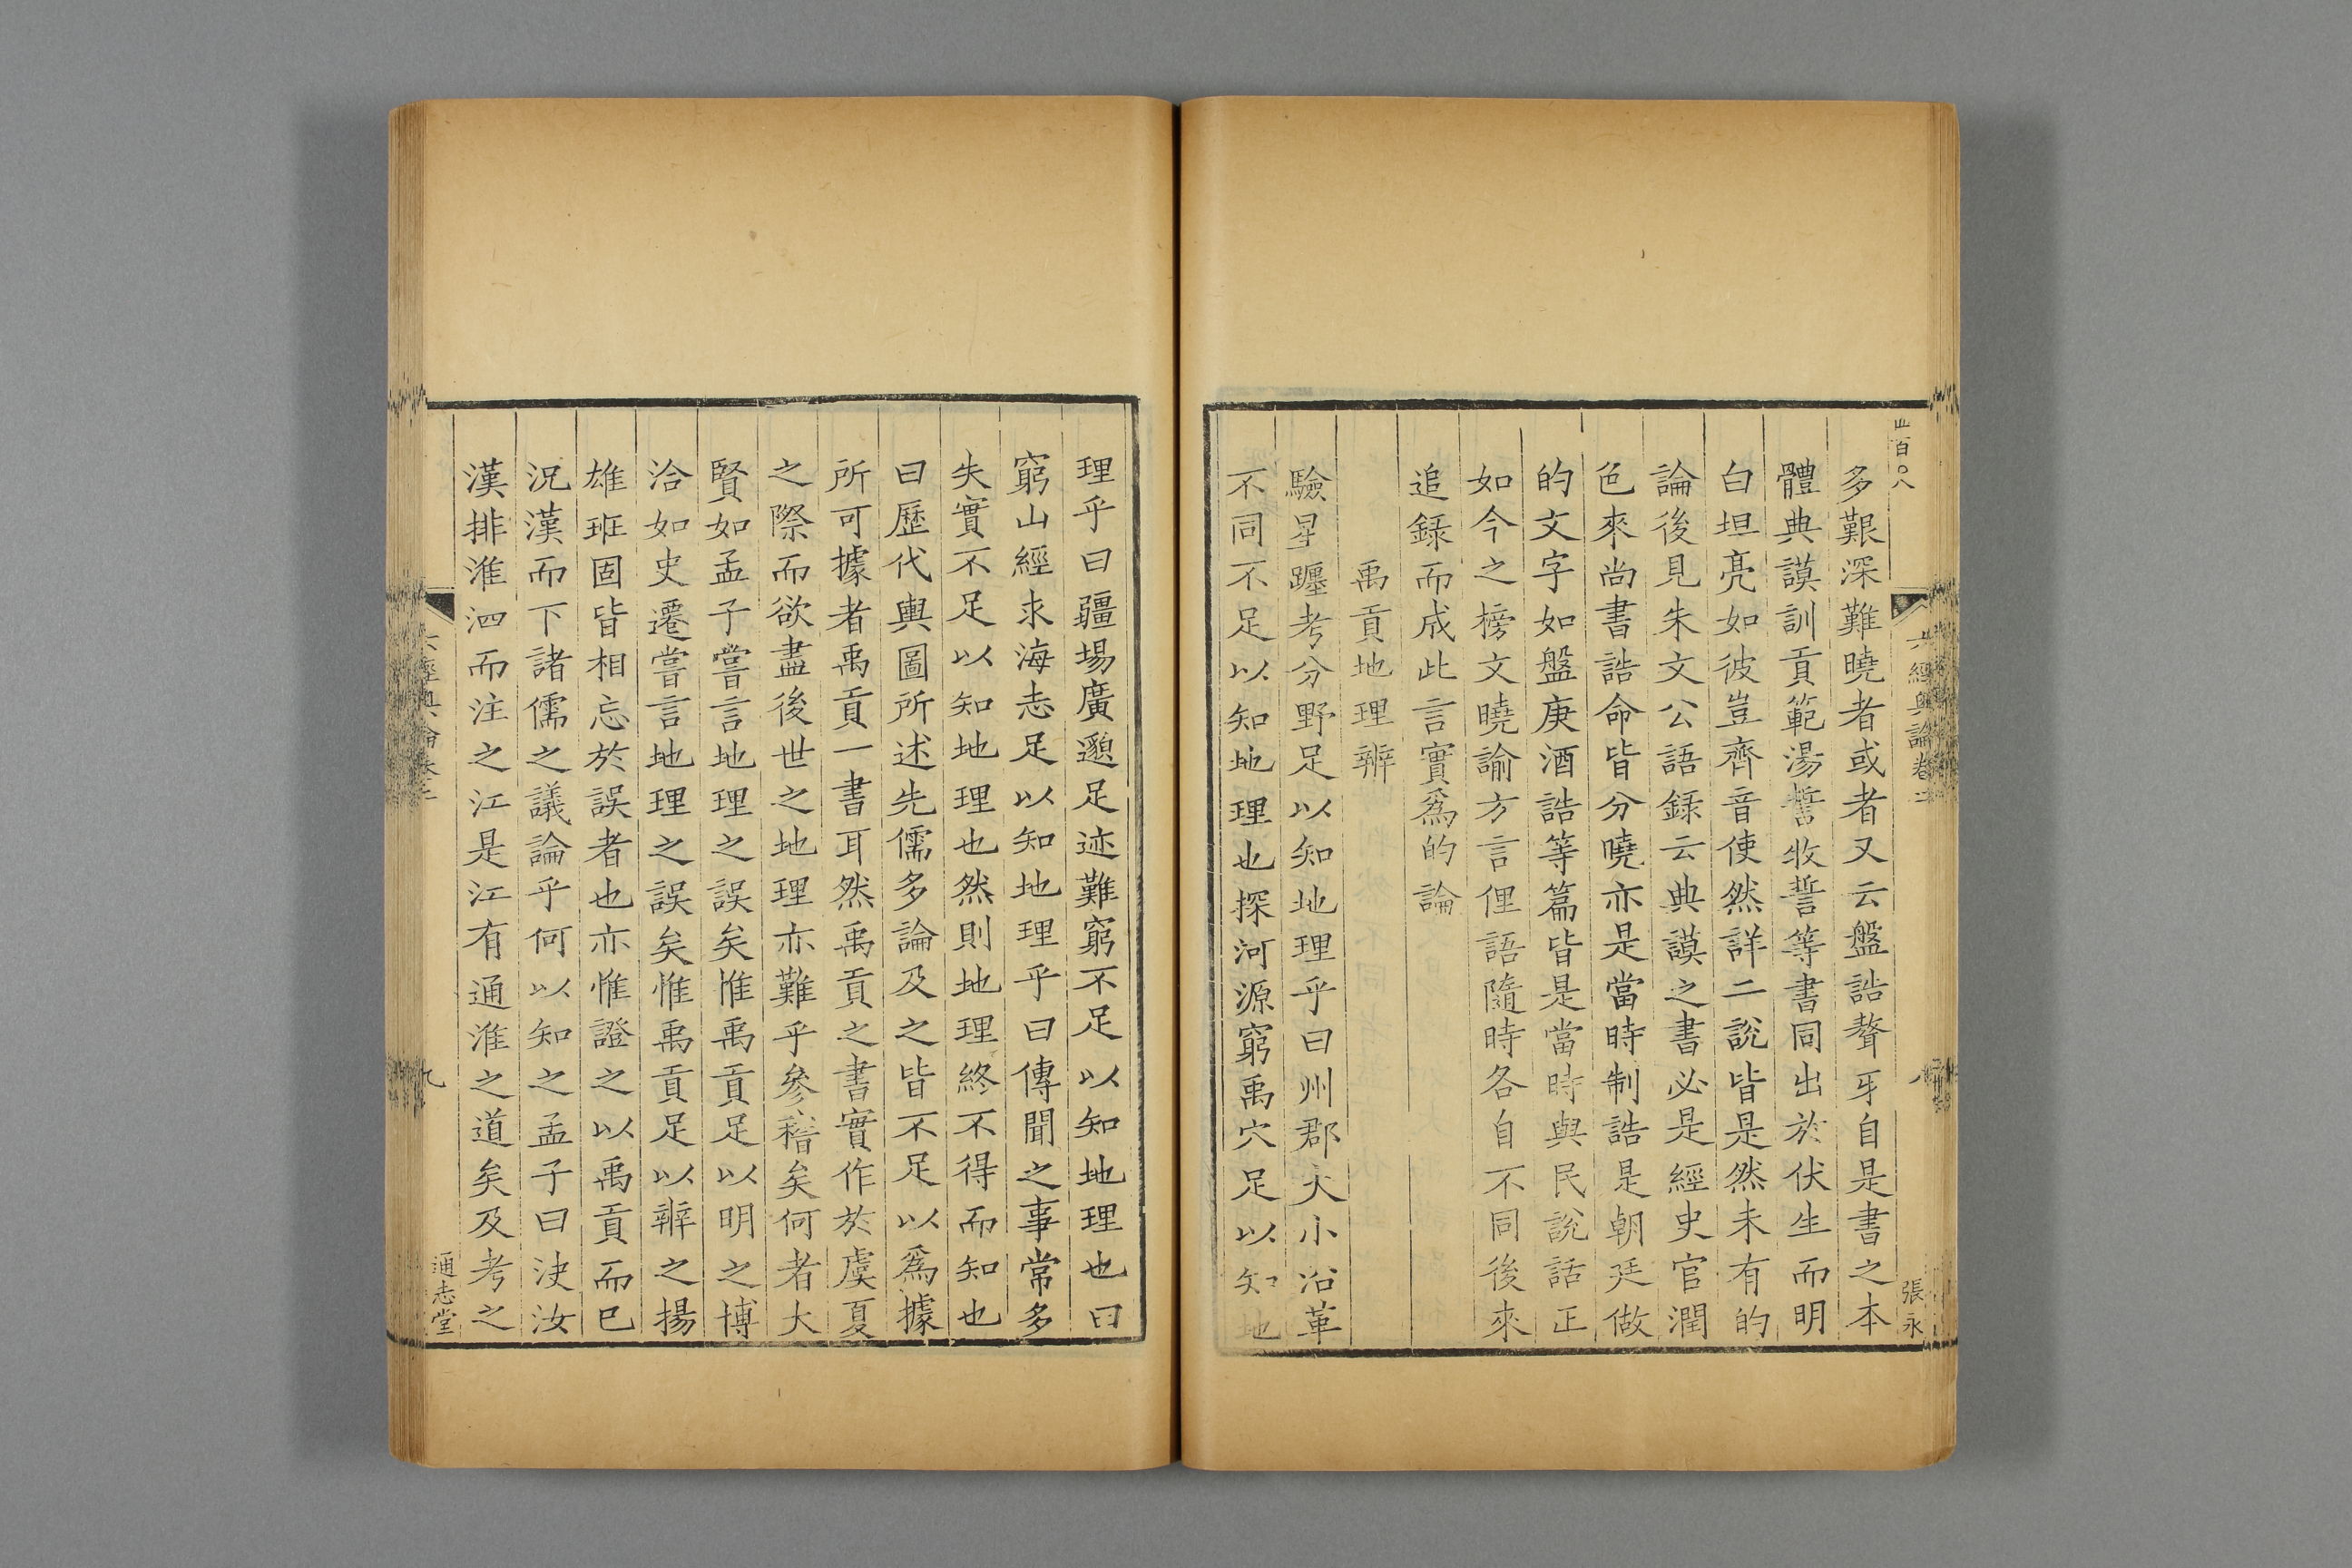 四百〇八
六經奧論卷二
八
張永
多艱深難曉者或者又云盤誥聱牙自是書之本
體典謨訓貢範湯誓牧誓等書同出於伏生而明
白坦亮如彼豈齊音使然詳二說皆是然未有的
論後見朱文公語録云典謨之書必是經史官潤
色來尚書誥命皆分曉亦是當時制誥是朝廷做
的文字如盤庚酒誥等篇皆是當時與民說話正
如今之榜文曉諭方言俚語隨時各自不同後來
追録而成此言實爲的論
禹貢地理辨
驗星躔考分野足以知地理乎曰州郡大小沿革
不同不足以知地理也探河源窮禹穴足以知地
理乎曰疆場廣邈足迹難窮不足以知地理也曰
窮山經求海志足以知地理乎曰傳聞之事常多
失實不足以知地理也然則地理終不得而知也
曰歷代輿圖所述先儒多論及之皆不足以爲據
所可據者禹貢一書耳然禹貢之書實作於虞夏
之際而欲盡後世之地理亦難乎參稽矣何者大
賢如孟子嘗言地理之誤矣惟禹貢足以明之博
洽如史遷嘗言地理之誤矣惟禹貢足以辨之揚
雄班固皆相忘於誤者也亦惟證之以禹貢而已
況漢而下諸儒之議論乎何以知之孟子曰決汝
漢排淮泗而注之江是江有通淮之道矣及考之
六經奧論卷二
九
通志堂